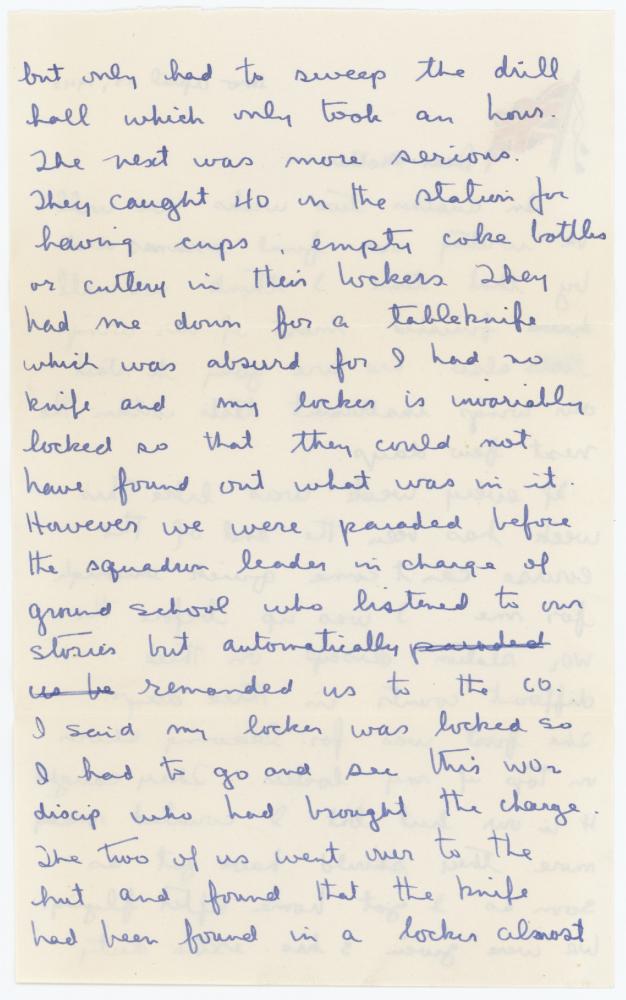 but only had to sweep the drill
hall which only took an hour.
The next was more serious.
They caught 40 in the station for
having cups, empty coke bottles
or cutlery in their lockers They
had me down for a tableknife
which was absurd for I had no
knife and my locker is invariably
locked so that they could not
have found out what was in it.
However we were paraded before
the squadron leader in charge of
ground school who listened to our
stories but automatically paraded
us be remanded us to the CO.
I said my locker was locked so
I had to go and see this WO2
discip who had brought the charge.
The two of us went over to the
hut and found that the knife
had been found in a locker almost